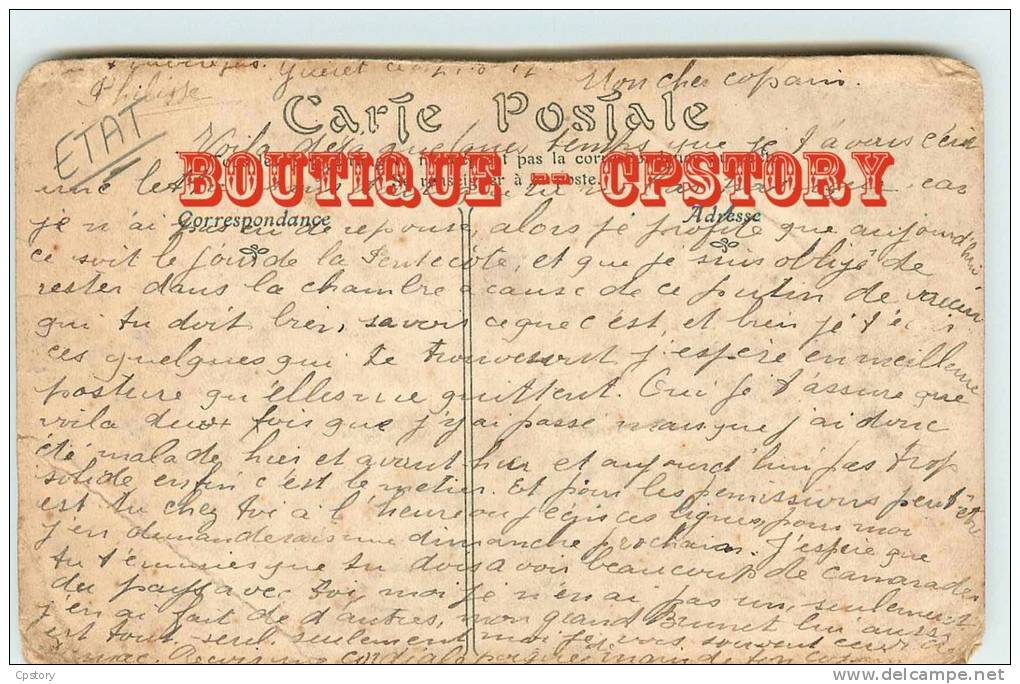 Mon cher copain.
Philisse
ETAT
Carte Postale
Voilà déja quelques temps que je t'avais écrit
BOUTIQUE -- CPSTORY
pas la
à poste.
une car
Correspondance
Adresse
je n'ai pas eu de reponse, alors je profite que aujourd'hui
ce soit le jour de la Pentecôte, et que je suis obligé de
rester dans la chambre a cause de ce putin de vaccin
qui tu doit bien, savoir ceque c'est, et bien je t'écris
ces quelques qui te trouveront j'espère en meilleure
posture qu'elles me quittent. Oui je t'assure que
voila deux fois que j'y ai passé mais que j'ai donc
été malade hier et avant hier et aujourd'hui pas trop
solide enfin c'est le metier. Et pour les permissions peut être
est tu chez toi à l'heure ou j'écris ces lignes, pour moi
j'en demanderais une dimanche prochain. J'espère que
tu t'ennuies que tu dois avoir beaucoup de camarades
du pays avec toi, moi je n'en ai pas un, seulement
j'en ai fait de d'autres, mon grand Brunet lui aussi
est tout seul seulement moi je vois souvent
Recois une cordiale poignée main de ton
Cpstory
delcampe.net